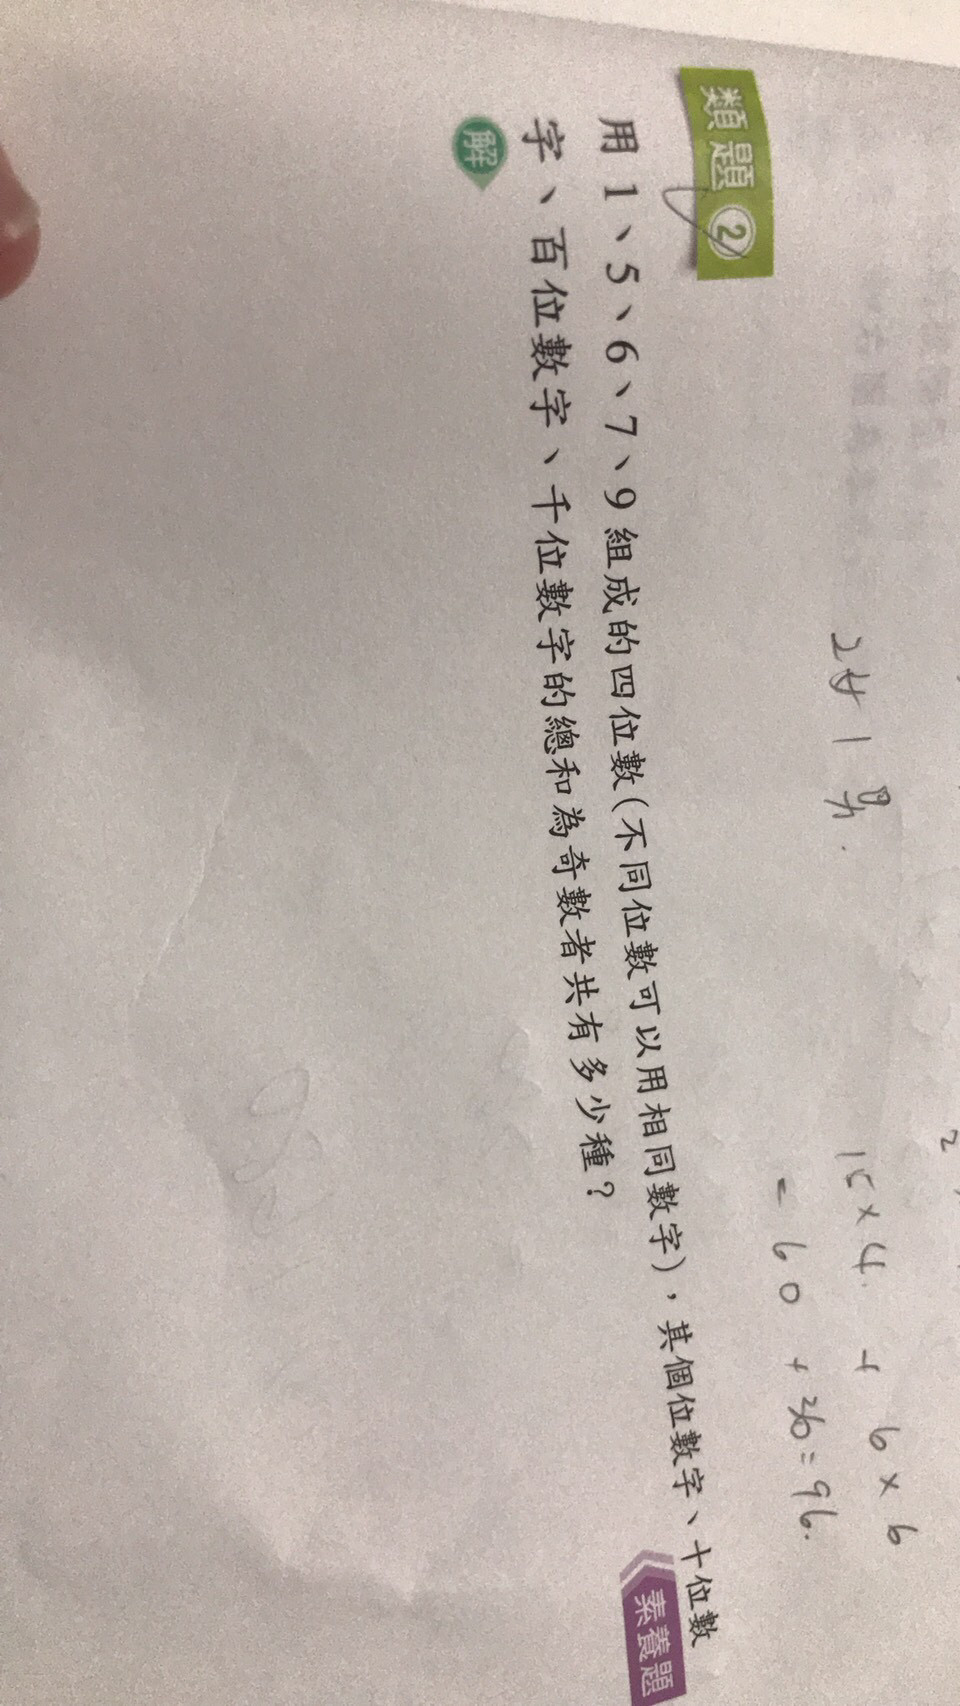 2女1男
15×4+6×6
=60+36=96.
類題2
用1、5、6、7、9組成的四位數(不同位數可以用相同數字)，其個位數字、十位數
字、百位數字、千位數字的總和為奇數者共有多少種？
素養題
解